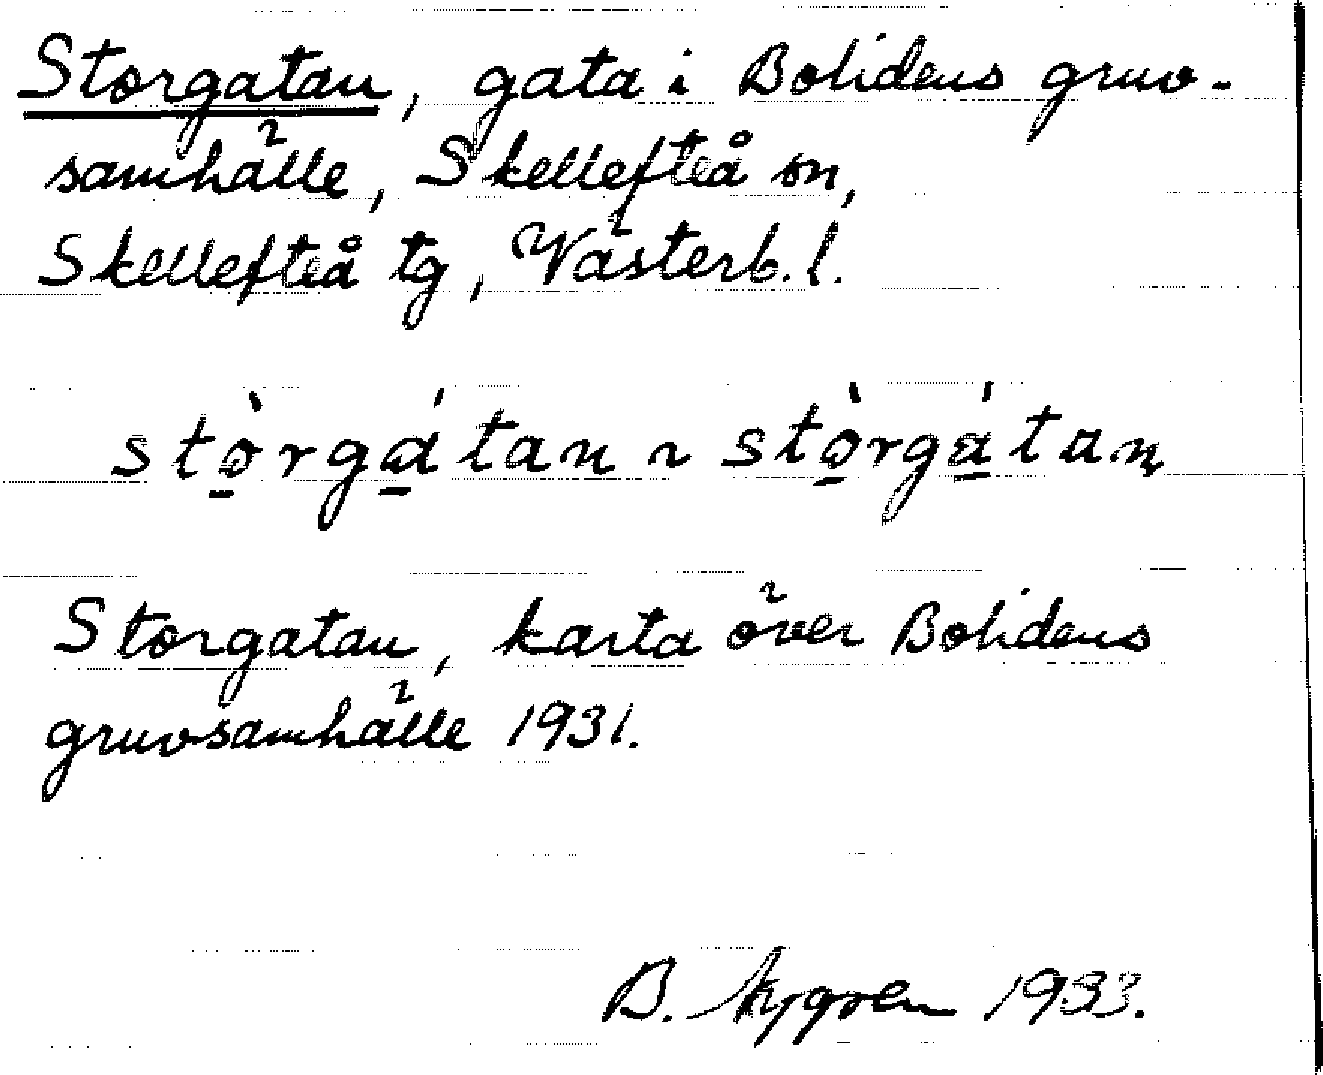 Storgatan, gata i Bolidens gruv-
samhälle, Skellefteå sn,
Skellefteå tg, Västerb. l.
stò̱rgá̱tan ~ stò̱rgá̱taṇ
Storgatan, karta över Bolidens
gruvsamhälle 1931.
B. Nygren 1933.